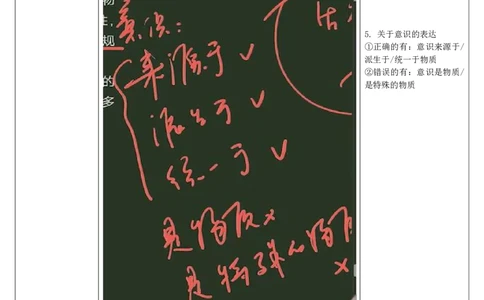 物
性,
规
的
多
意识:
来源于 ✓
派生于 ✓
统一于 ✓
是物质 ×
是特殊的物质 ×
5. 关于意识的表达
①正确的有：意识来源于/
派生于/统一于物质
②错误的有：意识是物质/
是特殊的物质